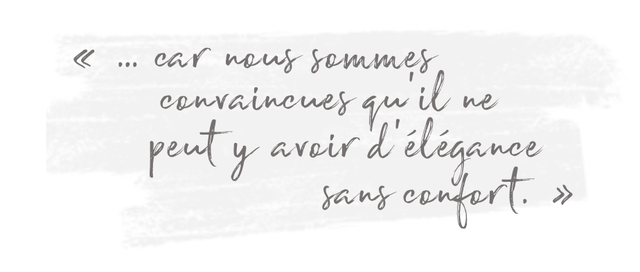 « ... car nous sommes
convaincues qu'il ne
peut y avoir d'élégance
sans confort. »